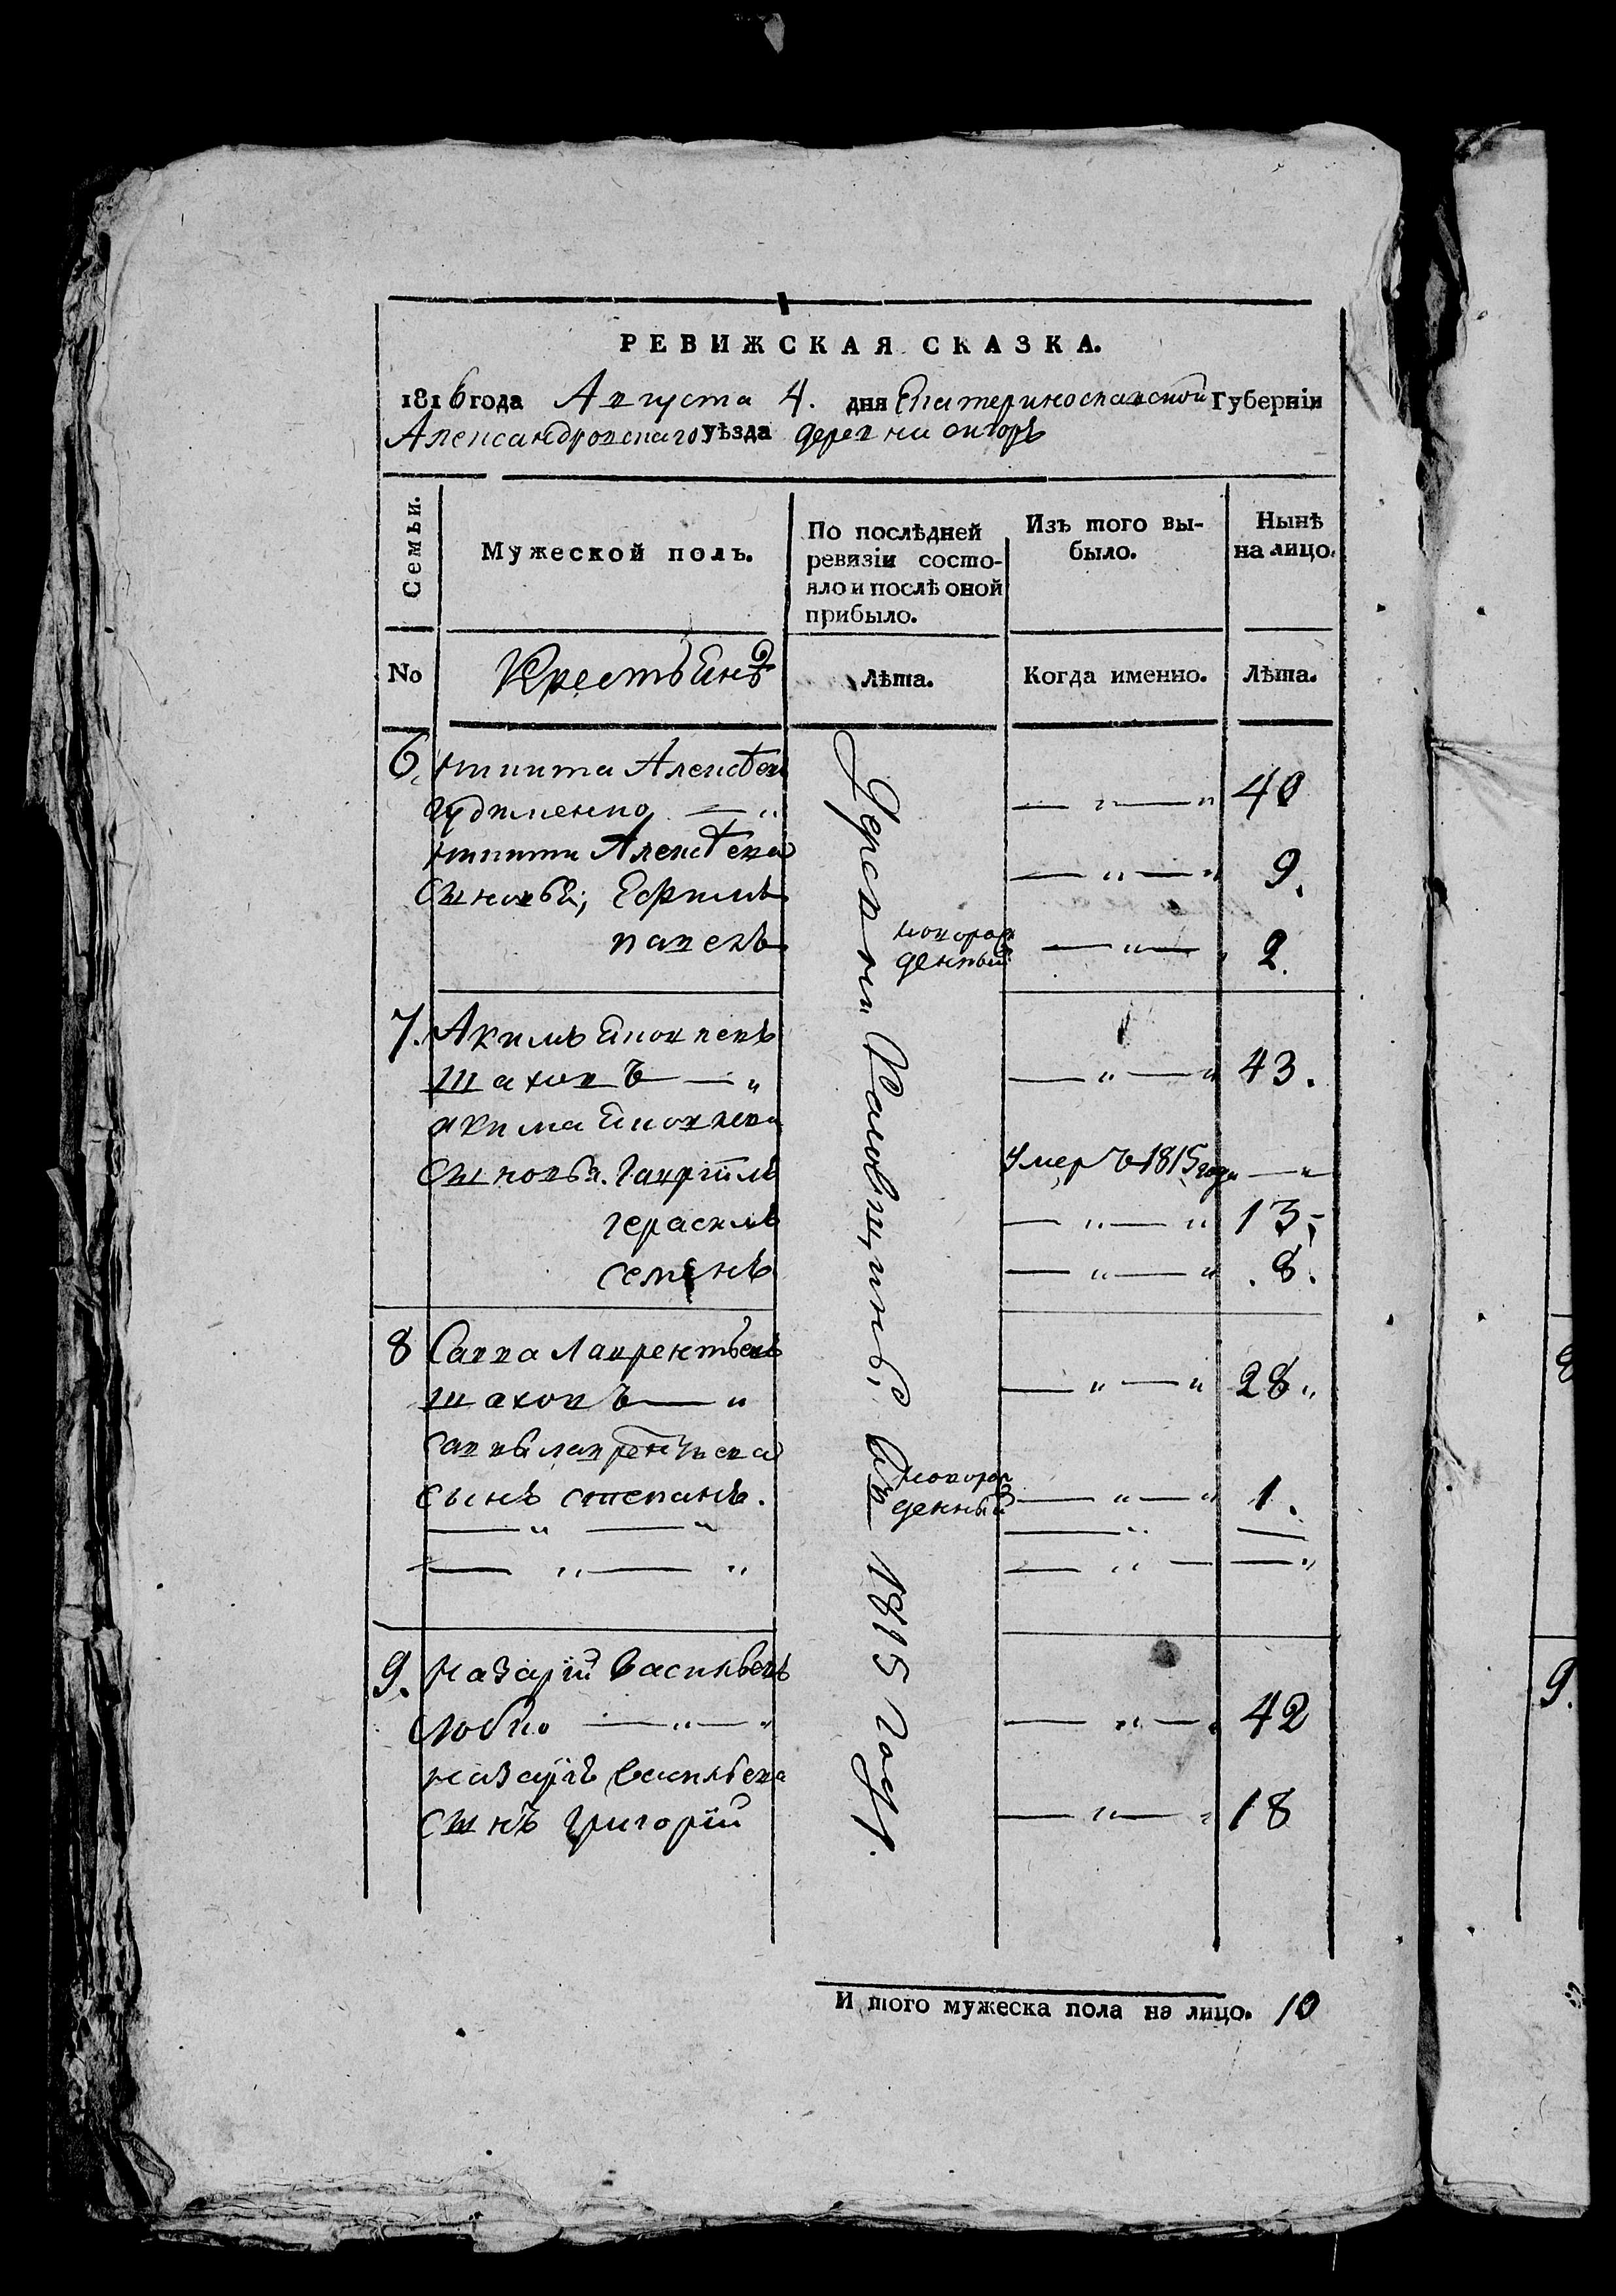 РЕВИЖСКАЯ СКАЗКА.
1816 года Августа 4. дня Екатеринославской Губерніи
Александровскаго уѣзда деревни
Семьи.
Мужеской полъ.
По послѣдней
ревизіи состо-
яло и послѣ оной
прибыло.
Изъ того вы-
было.
Нынѣ
на лицо.
No
Крестьянѣ
Лѣта.
Когда именно.
Лѣта.
6. Никита Алексѣевъ
— „ — „ 40
Никиты Алексѣева
сыновья; Ефимъ — „ — „ 9.
павелъ новорож
денный — „ — „ 2.
7. Акимъ
шаховъ — „ — „ — „ 43.
акима
сыновья. Гавріилъ умеръ 1815 года — „
герасимъ — „ — „ 13.
семенъ — „ — „ 8.
8 Савва Лаврентьевъ
шаховъ — „ — „ — „ 28„
саввы лаврентьева
сынъ степанъ. новорож
денный — „ — „ 1.
— „ — „ — „ —
— „ — „ — „ — — „
9. Назарій Васильевъ
— „ — „ — „ — „ 42
назарія васильева
сынъ григорій — „ — „ 18
Деревни въ 1815 году.
И того мужеска пола на лицо. 10
8
9.